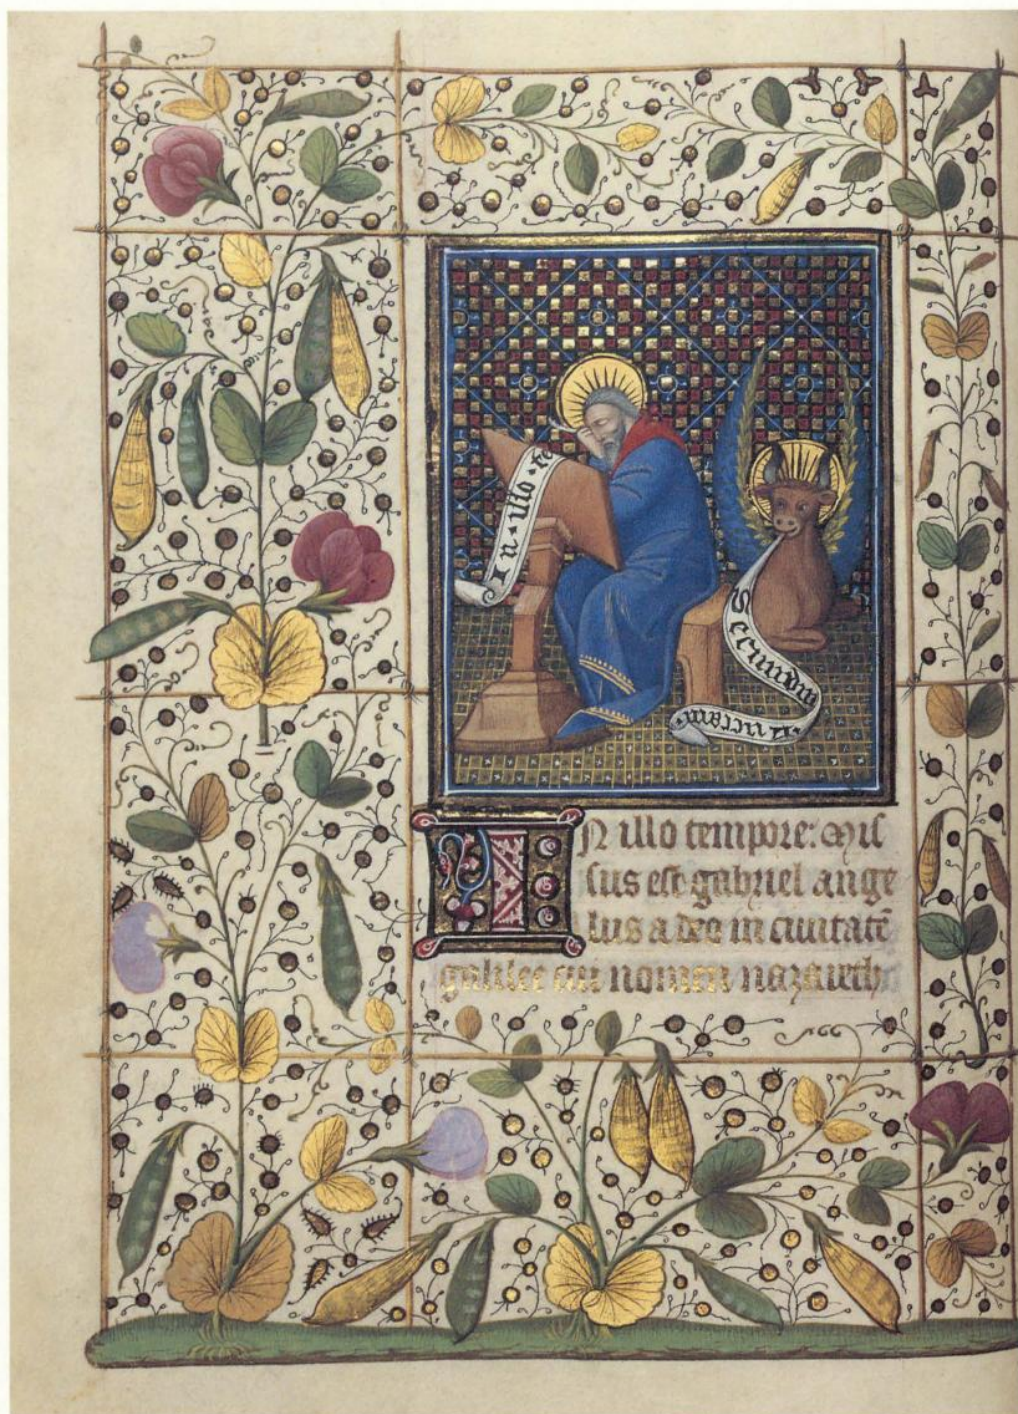 In · illo · te
Secundum
lucam
IN illo tempore: Mis
sus est gabriel ange
lus a deo in ciuitatē
galilee cui nomen nazareth